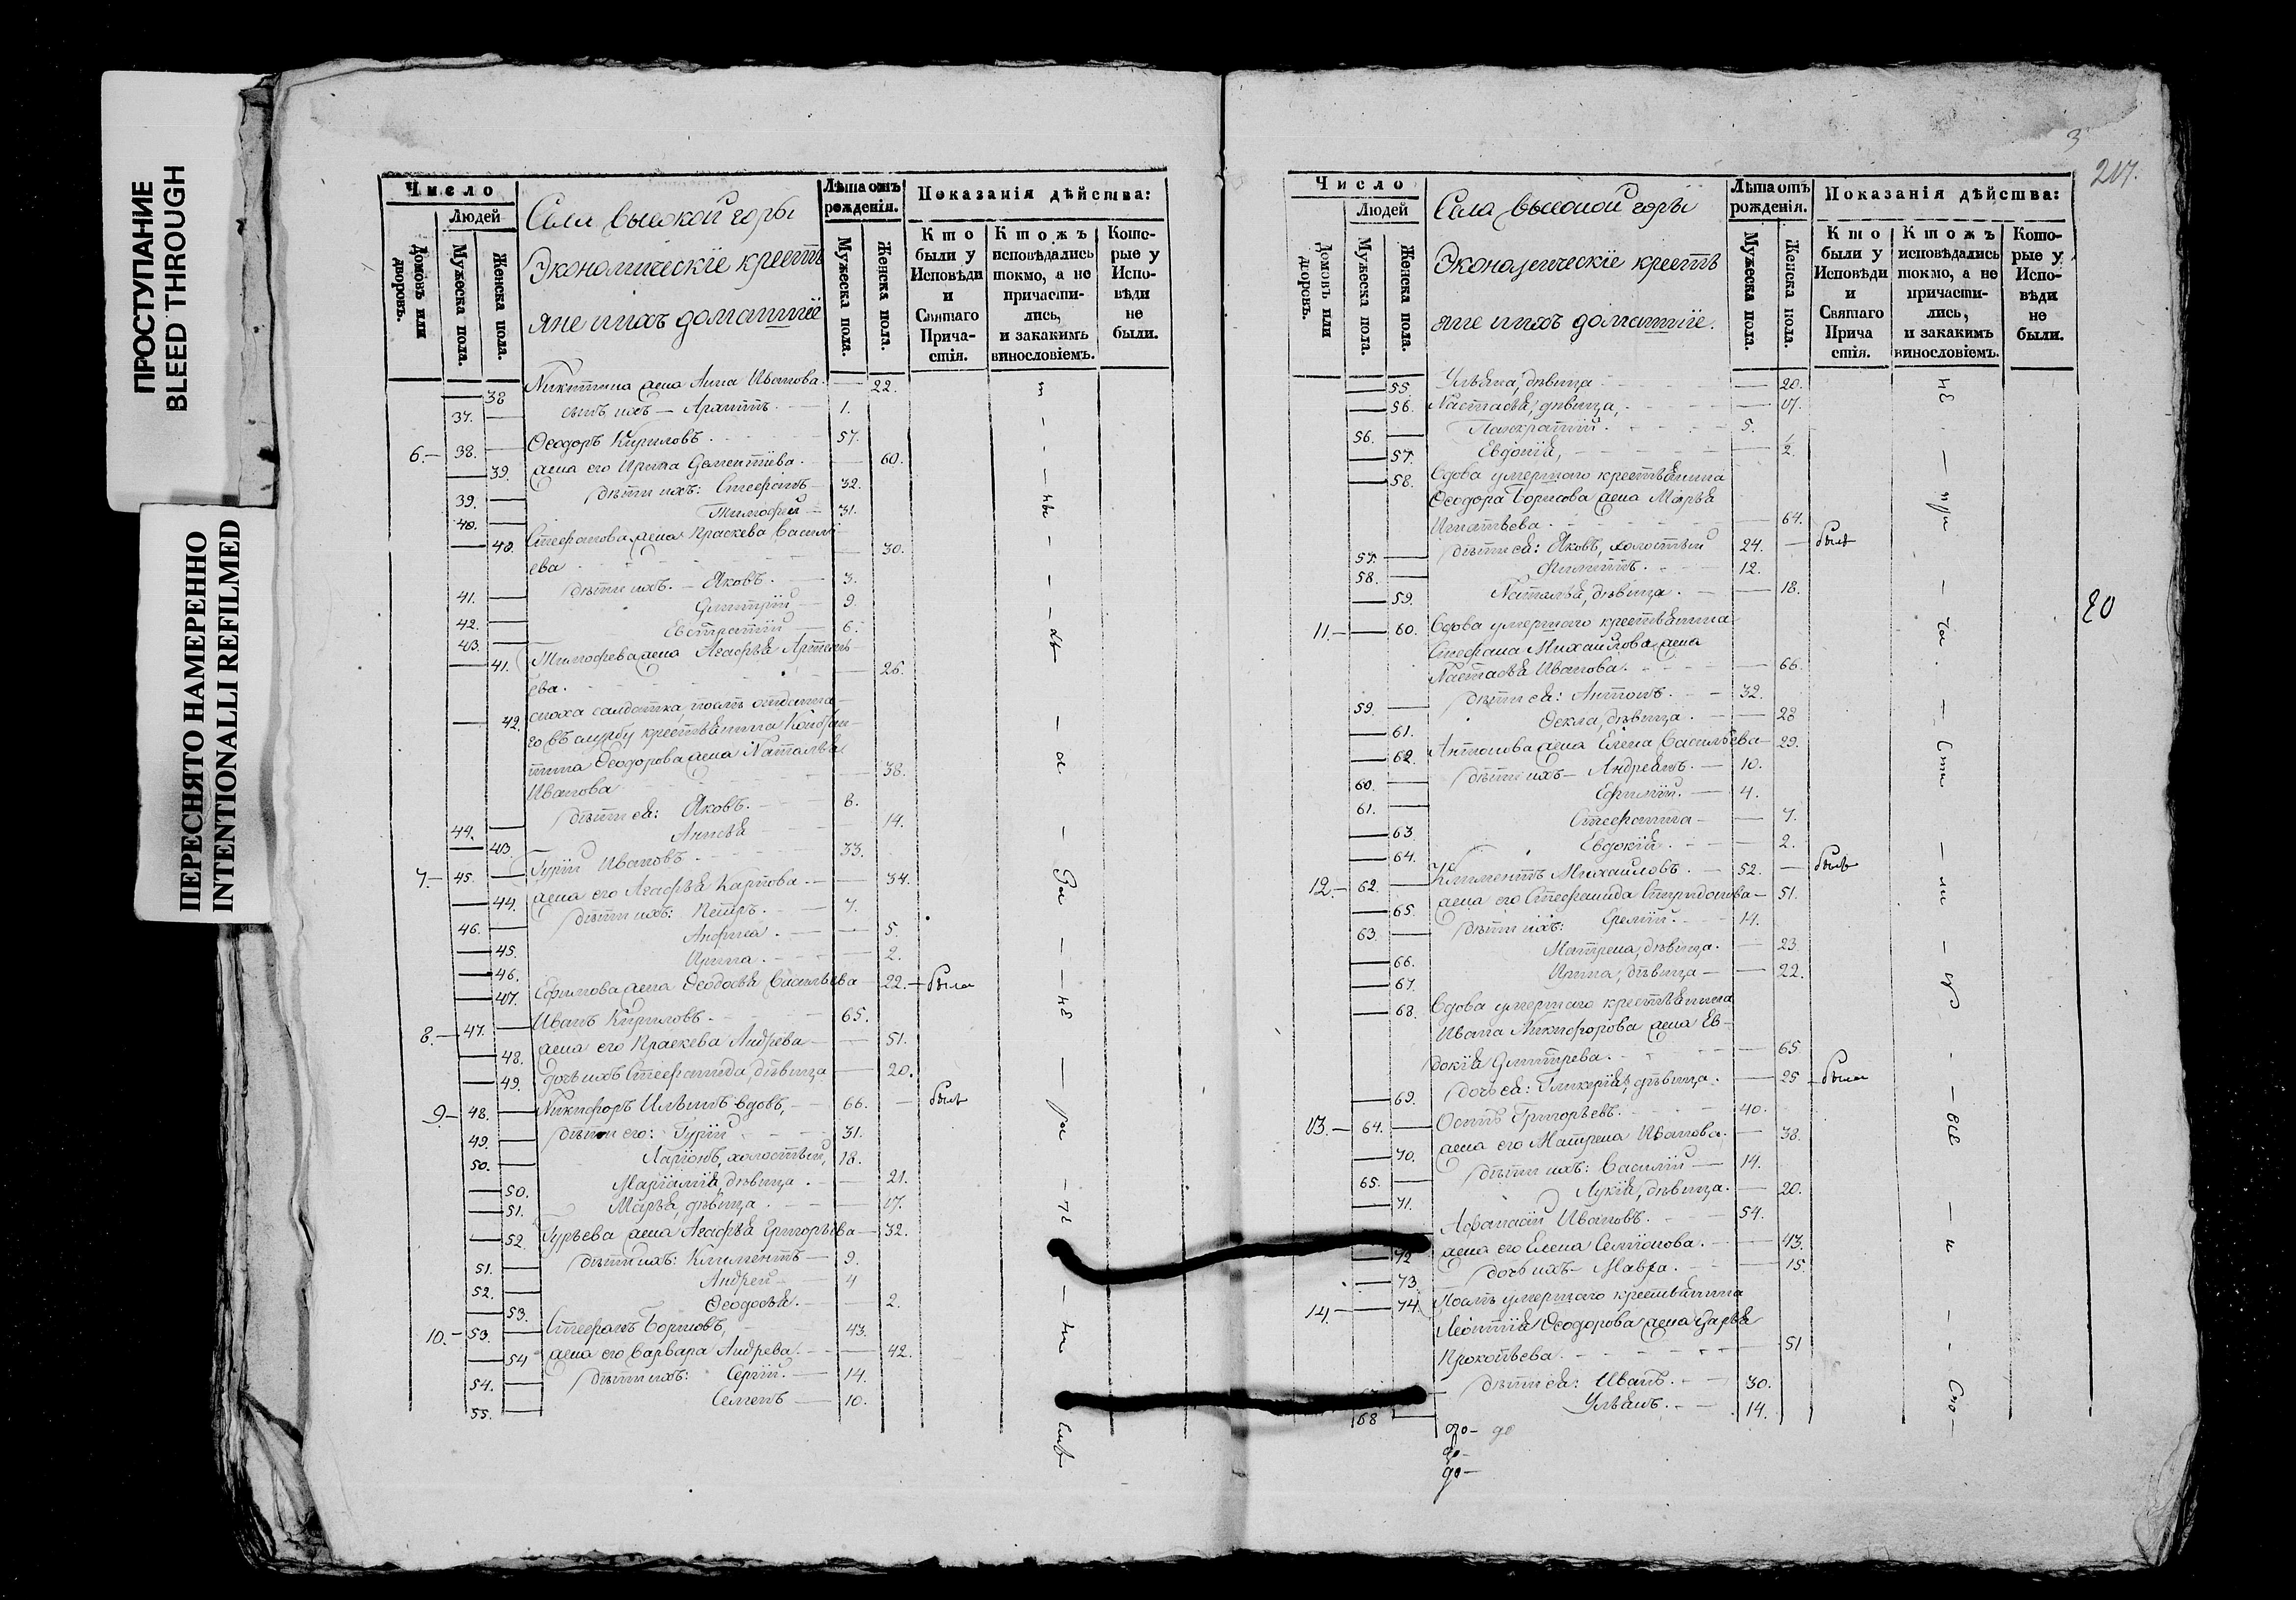 ПРОСТУПАНИЕ
BLEED THROUGH
ПЕРЕСНЯТО НАМЕРЕННО
INTENTIONALLI REFILMED
Число
Людей
Домовъ или дворовъ.
Мужеска пола.
Женска пола.
Села высокой горы
Экономическіе крестъ
яне и ихъ домашніе
Лѣта отъ рожденія.
Мужеска пола.
Женска пола.
Показанія дѣйства:
Кто были у Исповѣди и Святаго Прича-стія.
Ктожъ исповѣдались токмо, а не причасти-лись, и закакимъ винословіемъ.
Кото-рые у Испо-вѣди не были.
38 Никитина жена Анна Иванова. — 22.
37. — сынъ ихъ — 1.
6. — 38. — Ѳеодоръ Кириловъ. 57.
39. жена его Ирина Дементіева. — 60.
39. — дѣти ихъ: Стефанъ — 32.
40. — Тимофей — 31.
40. Стефанова жена Праскева Василі
ева — 30.
41. — дѣти ихъ. — Яковъ. — 3.
42. — Димитрій — 9.
43. — Евстратій — 6.
41. Тимофева жена Агафья Артемь-
ева. — 26.
42. сноха салдатка, отданна-
го въ службу крестьянина
Ѳеодорова жена Наталья
Иванова — 38.
44. — дѣти ея: Яковъ. 8.
43. — 14.
7. — 45. — Гурій Ивановъ. 33.
44. жена его Агафья Карпова. — 34.
46. — дѣти ихъ: Петръ. — 7.
45. Анфиса. — 5.
46. Ирина. — 2.
47. Ефимова жена Ѳеодосья Васильева — 22. — была
8. — 47. — Иванъ Кириловъ. 65.
48. жена его Праскева Андрева — 51.
49. дочь ихъ Стефанида, дѣвица — 20.
9. — 48. — Никифоръ Ильинъ вдовъ, — 66. — былъ
49. — дѣти его: Гурій 31.
50. — Ларіонъ, холостый, 18.
50. дѣвица. — 21.
51. Марья, дѣвица. — 17.
52. Гурьева жена Агафья Григорьева — 32.
51. — дѣти ихъ: Климентъ — 9.
52. — Андрей — 4
53. Ѳеодосья. — 2.
10. — 53. — Стефанъ Борисовъ, 43.
54 жена его Варвара Андрева. — 42.
54. — дѣти ихъ: Сергій. — 14.
55. — Семенъ — 10.
3
217.
Число
Людей
Домовъ или дворовъ.
Мужеска пола.
Женска пола.
Села высокой горы
Экономическіе крестъ
яне и ихъ домашніе.
Лѣта отъ рожденія.
Мужеска пола.
Женска пола.
Показанія дѣйства:
Кто были у Исповѣди и Святаго Прича стія.
Ктожъ исповѣдались токмо, а не причасти-лись, и закакимъ винословіемъ.
Кото-рые у Испо-вѣди не были.
55. Ульяна, дѣвица — 20.
56. Настасья, дѣвица, — 17.
56. — Панкратій. 5.
57. Евдокія, — 2.
58. Вдова умершаго крестьянина
Ѳеодора Борисова жена Марья
Игнатьева. — 64.
57. — дѣти ея: Яковъ, холостый 24. — былъ
58. — Филиппъ. 12.
59. Наталья, дѣвица. — 18.
20
11. — 60. Вдова умершаго крестьянина
Стефана Михаилова жена
Настасья Иванова. — 66.
59. — дѣти ея: Антонъ. — 32.
61. Ѳекла, дѣвица. — 28
62. Антонова жена Елена Васильева — 29.
60. — дѣти ихъ — Андреянъ. — 10.
61. — Ефимій. — 4.
63. Стефанида — 7.
64. Евдокія. — 2.
12. — 62. — Климентъ Михаиловъ. — 52. — былъ
65. жена его Стефанида Спиридонова — 51.
63. — дѣти ихъ: Еремій. 14.
66. Матрена, дѣвица. — 23
67. Ирина, дѣвица — 22.
68. Вдова умершаго крестьянина
Ивана Никифорова жена Ев-
докія Димитрева. — 65
69. дочь ея: Гликерія, дѣвица. — 25 — была
13. — 64. — Осипъ Григорьевъ. 40.
70. жена его Матрена Иванова. — 38.
65. — дѣти ихъ: Василій — 14.
71. Лукія, дѣвица. — 20.
Афанасій Ивановъ. 54.
72 жена его Елена Семіонова. — 43.
73 дочь ихъ — Мавра. — 15.
14. — 74. умершаго крестьянина
Леонтія Ѳеодорова жена Дарья
Прокопьева. — 51
дѣти ея: Иванъ. — 30.
68 — Ульянъ. — 14.